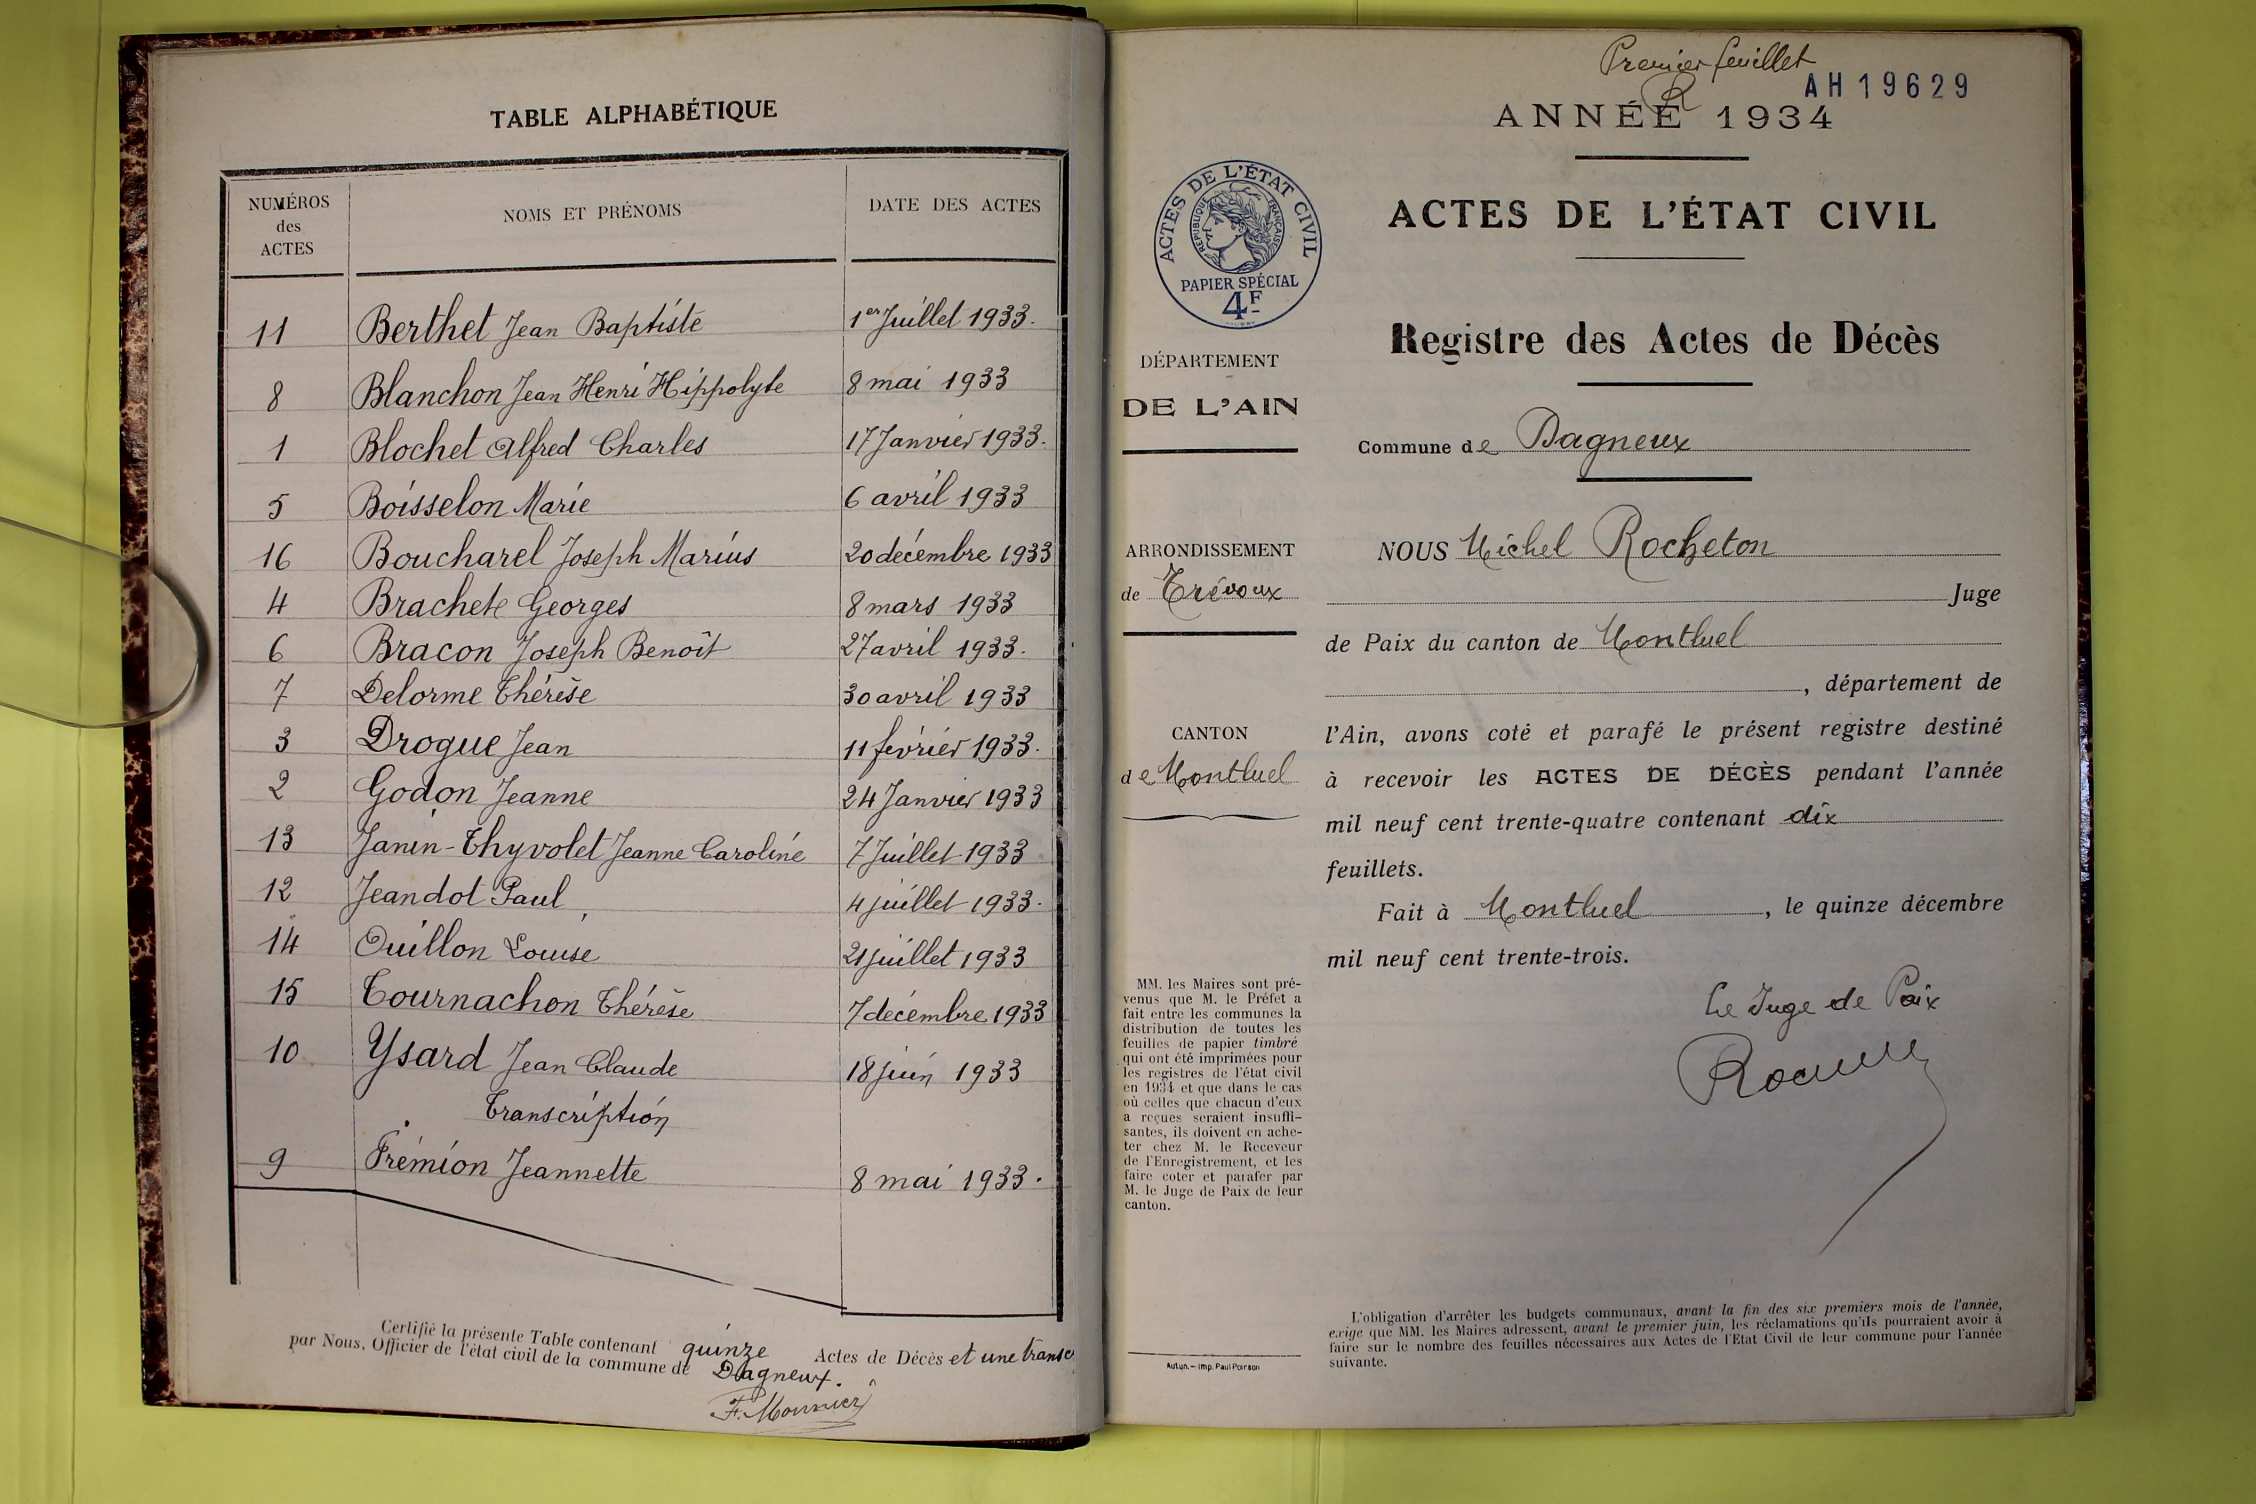 TABLE ALPHABÉTIQUE
NUMÉROS des ACTES NOMS ET PRÉNOMS DATE DES ACTES
11 Berthet Jean Baptiste 1er Juillet 1933.
8 Blanchon Jean Henri Hippolyte 8 mai 1933
1 Blochet Alfred Charles 17 Janvier 1933.
5 Boisselon Marie 6 avril 1933
16 Boucharel Joseph Marius 20 décembre 1933
4 Brachet Georges 8 mars 1933
6 Bracon Joseph Benoît 27 avril 1933.
7 Delorme Thérèse 30 avril 1933
3 Drogue Jean 11 février 1933.
2 Godon Jeanne 24 Janvier 1933
13 Janin-Thyvolet Jeanne Caroline 7 Juillet 1933
12 Jeandot Paul 4 juillet 1933.
14 Ouillon Louise 21 juillet 1933
15 Tournachon Thérèse 7 décembre 1933
10 Ysard Jean Claude 18 juin 1933
Transcription
9 Frémion Jeannette 8 mai 1933.
Certifié la présente Table contenant quinze Actes de Décès et une transc
par Nous, Officier de l'état civil de la commune de Dagneux.
F. Mounier
Premier feuillet
R
AH 19629
ANNÉE 1934
ACTES DE L'ÉTAT CIVIL
RÉPUBLIQUE FRANÇAISE
PAPIER SPÉCIAL
4F
ACTES DE L'ÉTAT CIVIL
Registre des Actes de Décès
DÉPARTEMENT
DE L'AIN
Commune de Dagneux
ARRONDISSEMENT
de Trévoux
CANTON
de Montluel
NOUS Michel Rocheton
Juge
de Paix du canton de Montluel
, département de
l'Ain, avons coté et parafé le présent registre destiné
à recevoir les ACTES DE DÉCÈS pendant l'année
mil neuf cent trente-quatre contenant dix
feuillets.
Fait à Montluel, le quinze décembre
mil neuf cent trente-trois.
Le Juge de Paix
MM. les Maires sont pré-
venus que M. le Préfet a
fait entre les communes la
distribution de toutes les
feuilles de papier timbré
qui ont été imprimées pour
les registres de l'état civil
en 1934 et que dans le cas
où celles que chacun d'eux
a reçues seraient insuffi-
santes, ils doivent en ache-
ter chez M. le Receveur
de l'Enregistrement, et les
faire coter et parafer par
M. le Juge de Paix de leur
canton.
Autun. — Imp. Paul Poirson
L'obligation d'arrêter les budgets communaux, avant la fin des six premiers mois de l'année,
exige que MM. les Maires adressent, avant le premier juin, les réclamations qu'ils pourraient avoir à
faire sur le nombre des feuilles nécessaires aux Actes de l'État Civil de leur commune pour l'année
suivante.